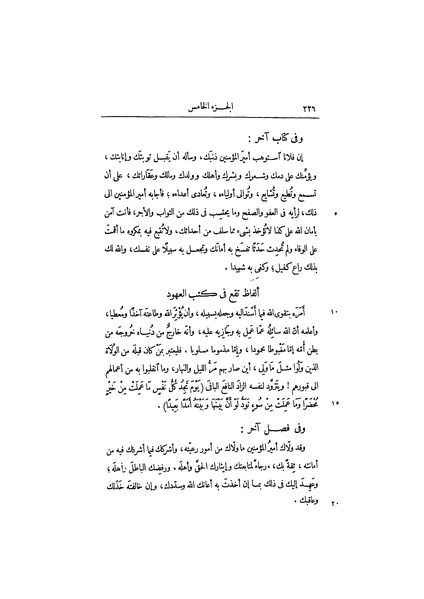 ٢٢٦ الجزء الخامس
وفى كتاب آخر :
إن فلانا آستوهب أميرَ المؤمنين ذنبَك، وسأله أن يَقبل توبتَك وإنابتك،
ويؤمّنك على دمك وشَعرك وبشرك وأهلك وولدك ومالك وعَقاراتك، على أن
تسمع وتُطيع وتُشايع، وتُوالى أولياءه، وتُعادى أعداءه؛ فأجابه أمير المؤمنين الى
ذلك، لرأيه فى العفو والصفح وما يحتسب فى ذلك من الثواب والأجر، فأنت آمن ٥
بأمان الله على كذا لا تُؤخذ بشىء مما سلف من أحداثك، ولا تُتبع فيه بمكروه ما أقمتَ
على الوفاء ولم تُحدِث حَدَثًا تفسَخ به أمانَك وتجعل به سبيلًا على نفسك، والله لك
بذلك راع كفيل؛ وكفى به شهيدا .
ألفاظ تقع فى كتب العهود
أمَرَه بتقوى الله فيما أسنَد اليه وجعله بسبيله، وأن يُؤثِر اللهَ وطاعتَه آخذًا ومُعطيا، ١٠
وأعلمه أنّ الله سائلُه عمّا عَمِل به وجازيه عليه، وأنه خارجٌ من دُنياه خُروجَه من
بطن أُمّه إمّا مغبوطا محمودا، وإمّا مذموما مسلوبا . فليعتبر بمَنْ كان قبلَه من الوُلاة
الذين وَلُوا مثلَ ما وَلِىَ ، أين صار بهم مَرُّ الليل والنهار، وما آنقلبوا به من أعمالهم
الى قبورهم ! ويتزوّد لنفسه الزادَ النافعَ الباقَ ﴿يَوْمَ تَجِدُ كُلُّ نَفْسٍ مَا عَمِلَتْ مِنْ خَيْرٍ
مُحْضَرًا وَمَا عَمِلَتْ مِنْ سُوءٍ تَوَدُّ لَوْ أَنَّ بَيْنَهَا وَبَيْنَهُ أَمَدًا بَعِيدًا﴾ . ١٥
وفى فصل آخر :
وقد ولّاك أميرُ المؤمنين ما ولّاك من أمور رعيّته، وأشركك فيما أشركك فيه من
أمانته ، ثِقةً بك، ورجاءً لمتابعتك وإيثارك الحقَّ وأهلَه، ورفضِك الباطلَ وأهلَه؛
وعَهِد إليك فى ذلك بما إن أخذتَ به أعانك الله وسدّدك، وإن خالفتَه خذَلك
وعاقبك . ٢٠